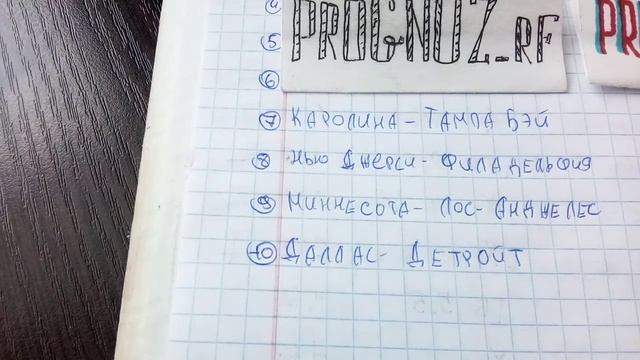 4
5
PROGNOZ_RF
PR
6
7 КАРОЛИНА - ТАМПА БЭЙ
8 НЬЮ ДЖЕРСИ - ФИЛАДЕЛЬФИЯ
9 МИННЕСОТА - ЛОС-АНДЖЕЛЕС
10 ДАЛЛАС - ДЕТРОЙТ